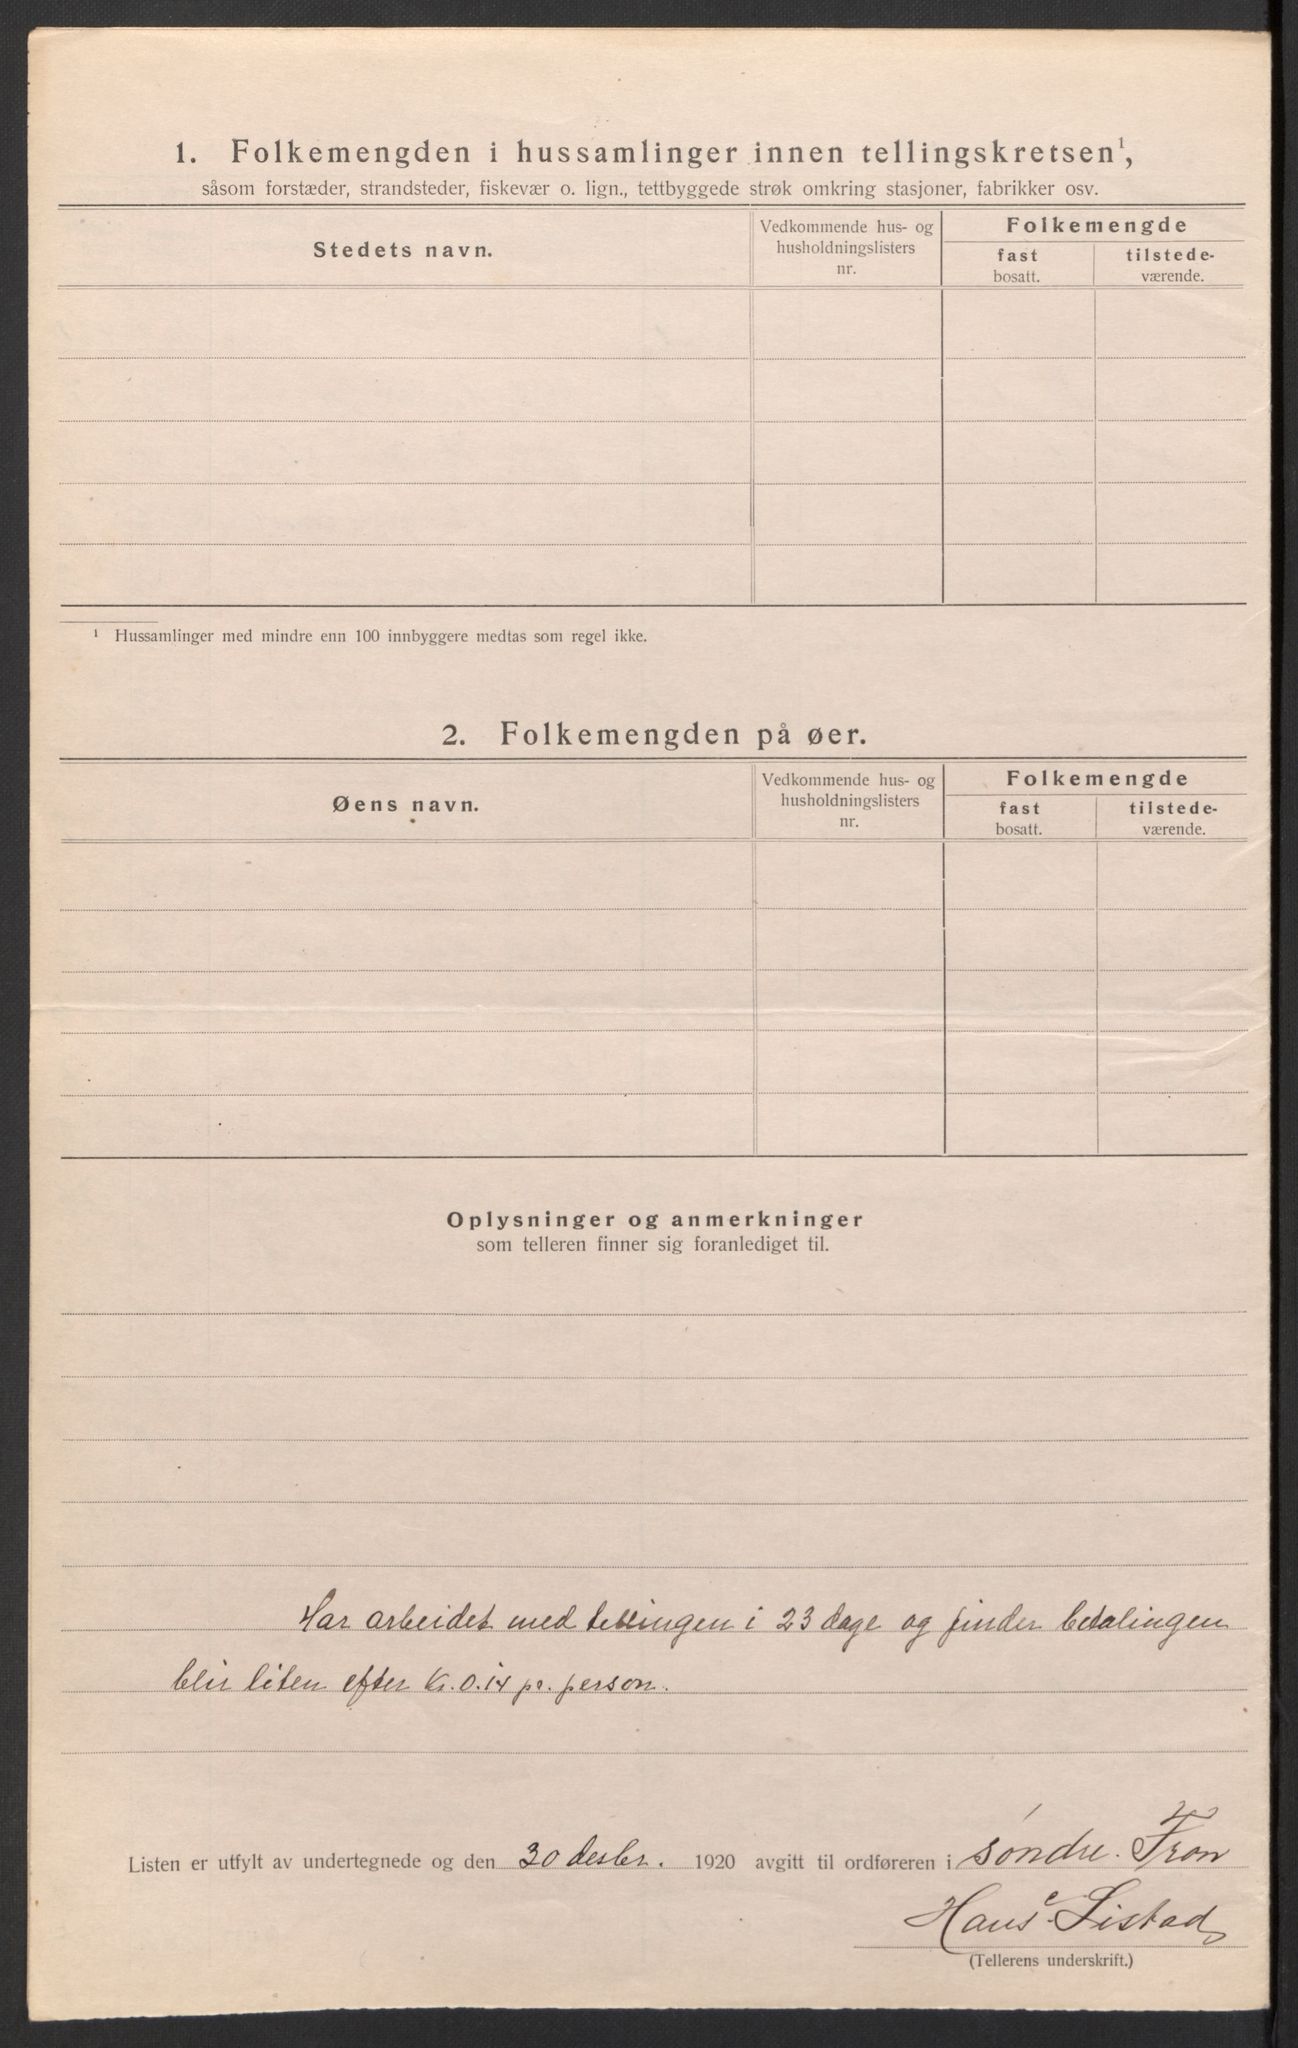 1. Folkemengden i hussamlinger innen tellingskretsen¹,
såsom forstæder, strandsteder, fiskevær o. lign., tettbyggede strøk omkring stasjoner, fabrikker osv.
Stedets navn.
Vedkommende hus- og
husholdningslisters
nr.
Folkemengde
fast
bosatt.
tilstede-
værende.
¹ Hussamlinger med mindre enn 100 innbyggere medtas som regel ikke.
2. Folkemengden på øer.
Øens navn.
Vedkommende hus- og
husholdningslisters
nr.
Folkemengde
fast
bosatt.
tilstede-
værende.
Oplysninger og anmerkninger
som telleren finner sig foranlediget til.
Har arbeidet med tellingen i 23 dage og finder betalingen
blir liten efter Kr. 0.14 pr. person.
Listen er utfylt av undertegnede og den 30 desbr. 1920 avgitt til ordføreren i søndre. Fron
Hans Listad
(Tellerens underskrift.)